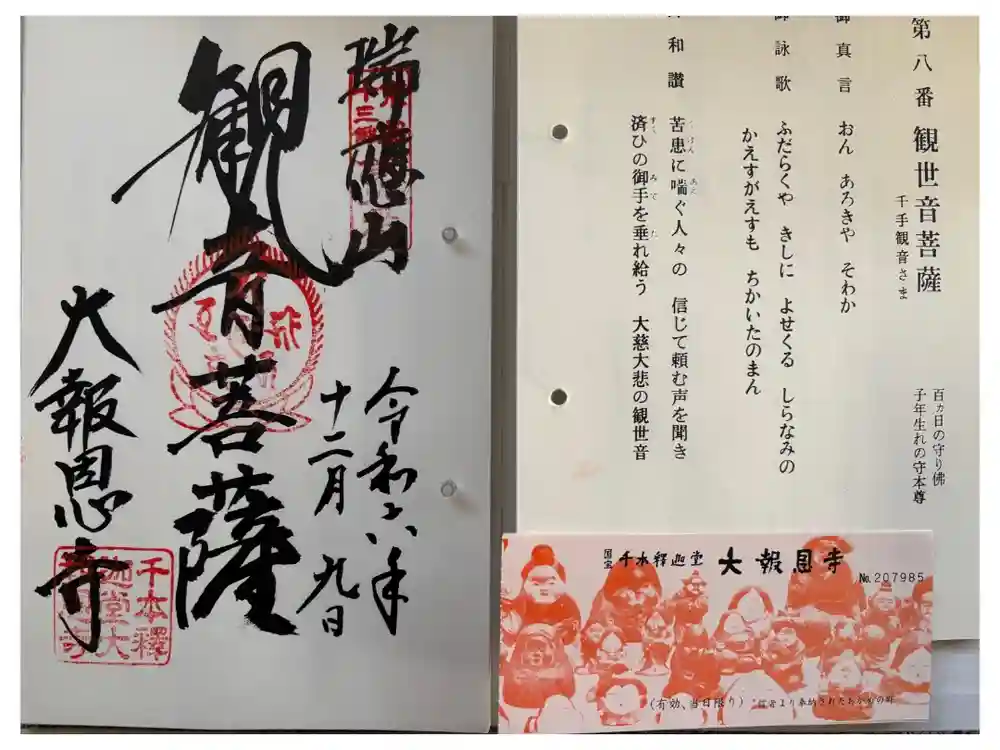 瑞應山
観音菩薩
令和六年
十二月九日
大報恩寺
千本釋
迦堂大
第八番 観世音菩薩
千手観音さま
百ヵ日の守り佛
子年生れの守本尊
御真言 おん あろきや そわか
御詠歌 ふだらくや きしに よせくる しらなみの
かえすがえすも ちかいたのまん
和讃 苦患に喘ぐ人々の 信じて頼む声を聞き
済ひの御手を垂れ給う 大慈大悲の観世音
国宝 千本釋迦堂 大報恩寺
No.207985
(有効、当日限り)